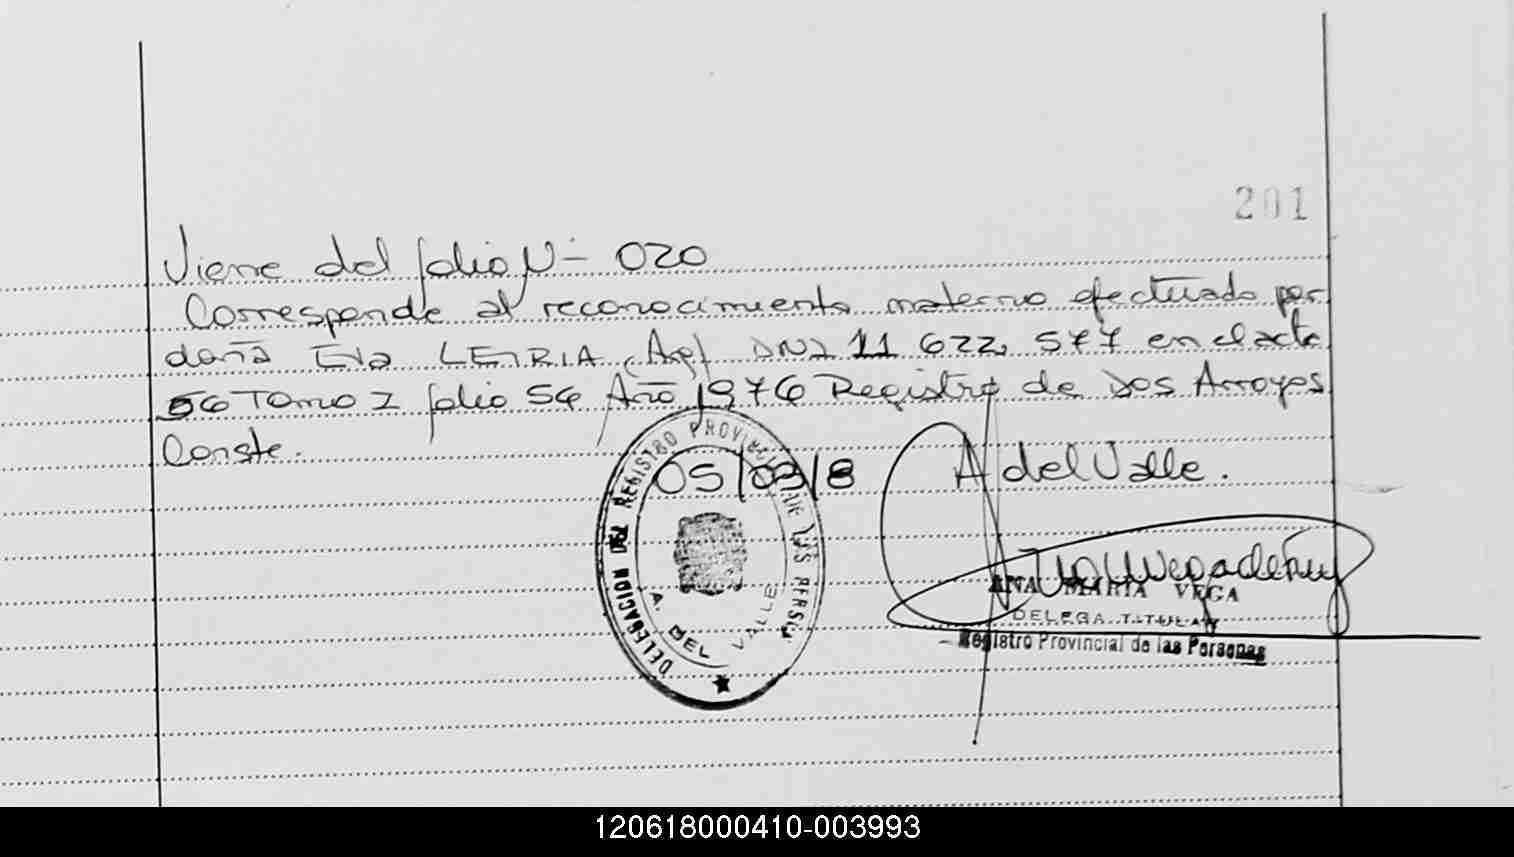 201
Viene del folio N- 020
Corresponde al reconocimiento materno efectuado por
doña Eva LEIRIA (Arg) DNI 11 622, 577 en el acta
56 Tomo I folio 56 Año 1976 Registro de Dos Arroyos
Conste.
05/03/8 A del Valle.
DELEGACION DEL REGISTRO PROVINCIAL DE LAS PERS
A. DEL VALLE
ANA MARIA VEGA
DELEGA TITULAR
Registro Provincial de las Personas
120618000410-003993